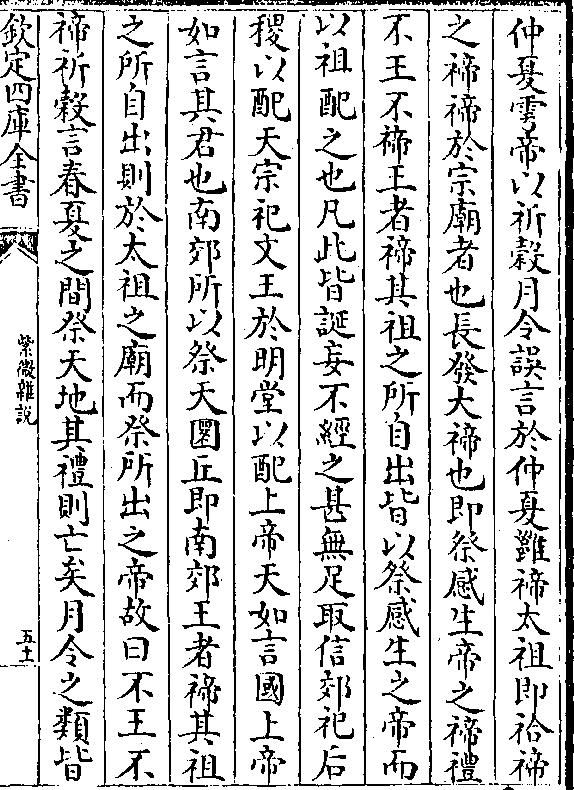 仲夏雩帝以祈穀月令誤言於仲夏雝禘太祖即祫禘
之禘禘於宗廟者也長發大禘也即祭感生帝之禘禮
不王不禘王者禘其祖之所自出皆以祭感生之帝而
以祖配之也凡此皆誕妄不經之甚無足取信郊祀后
稷以配天宗祀文王於明堂以配上帝天如言國上帝
如言其君也南郊所以祭天圜丘即南郊王者禘其祖
之所自出則於太祖之廟而祭所出之帝故曰不王不
禘祈穀言春夏之間祭天地其禮則亡矣月令之類皆
欽定四庫全書
紫微雜説
五十